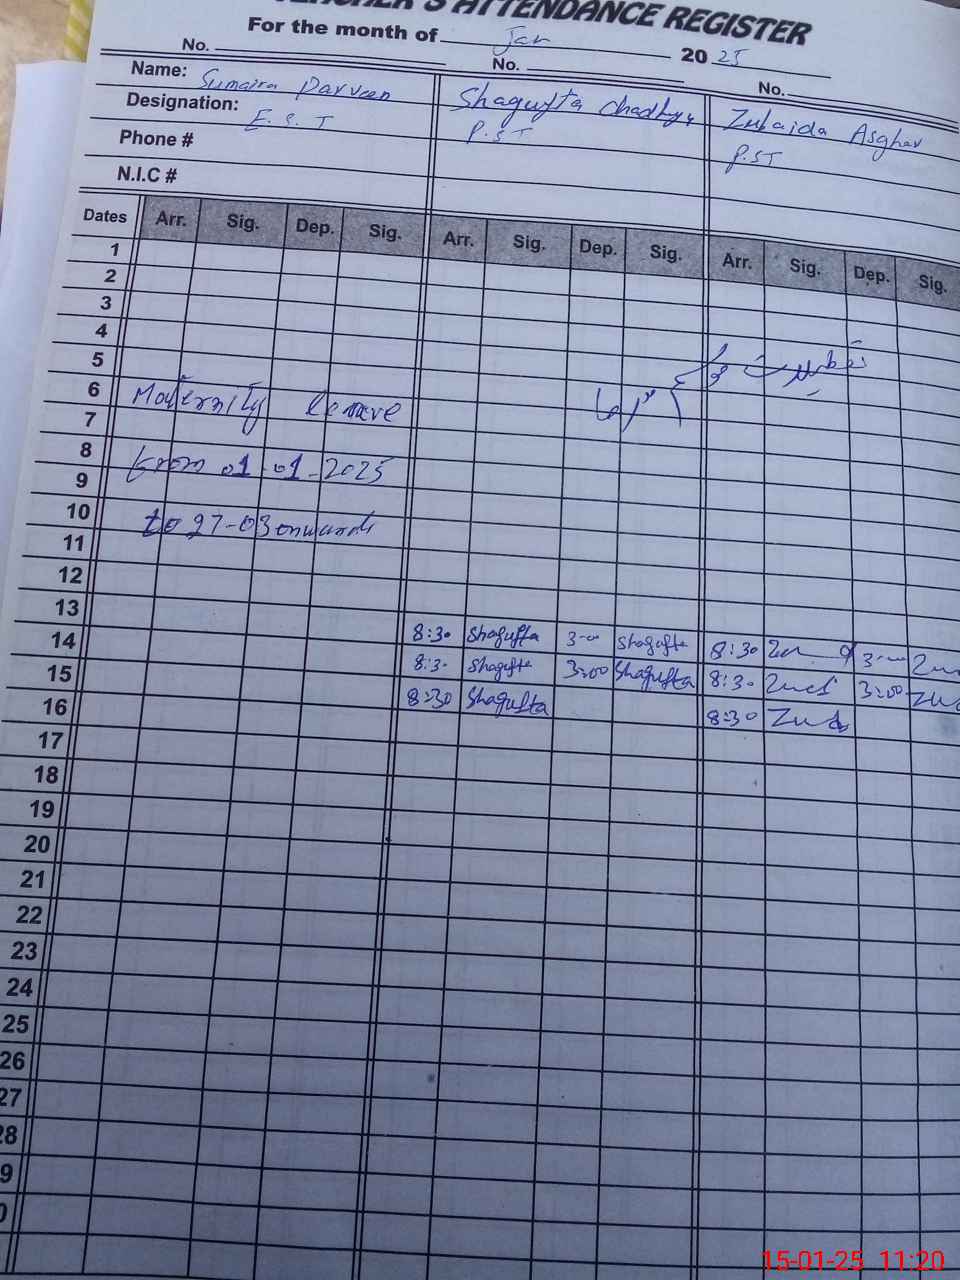 TEACHER'S ATTENDANCE REGISTER
For the month of Jan 2025
No. No. No.
Name: Sumaira Parveen Shagufta Chadhry Zubaida Asghar
Designation: E.S.T P.ST P.ST
Phone #
N.I.C #
Dates Arr. Sig. Dep. Sig. Arr. Sig. Dep. Sig. Arr. Sig. Dep. Sig.
1
2
3
4
5
تعطیلات موسم سرما
6 Maternity leave
7
8
From 01-01-2025
9
10
to 27-03 onwards
11
12
13
14 8:30 Shagufta 3-00 Shagufta 8:30 3-00
15 8:30 Shagufta 3:00 Shagufta 8:30 3:00
16 8:30 Shagufta 8:30
17
18
19
20
21
22
23
24
25
26
27
28
9
0
15-01-25 11:20